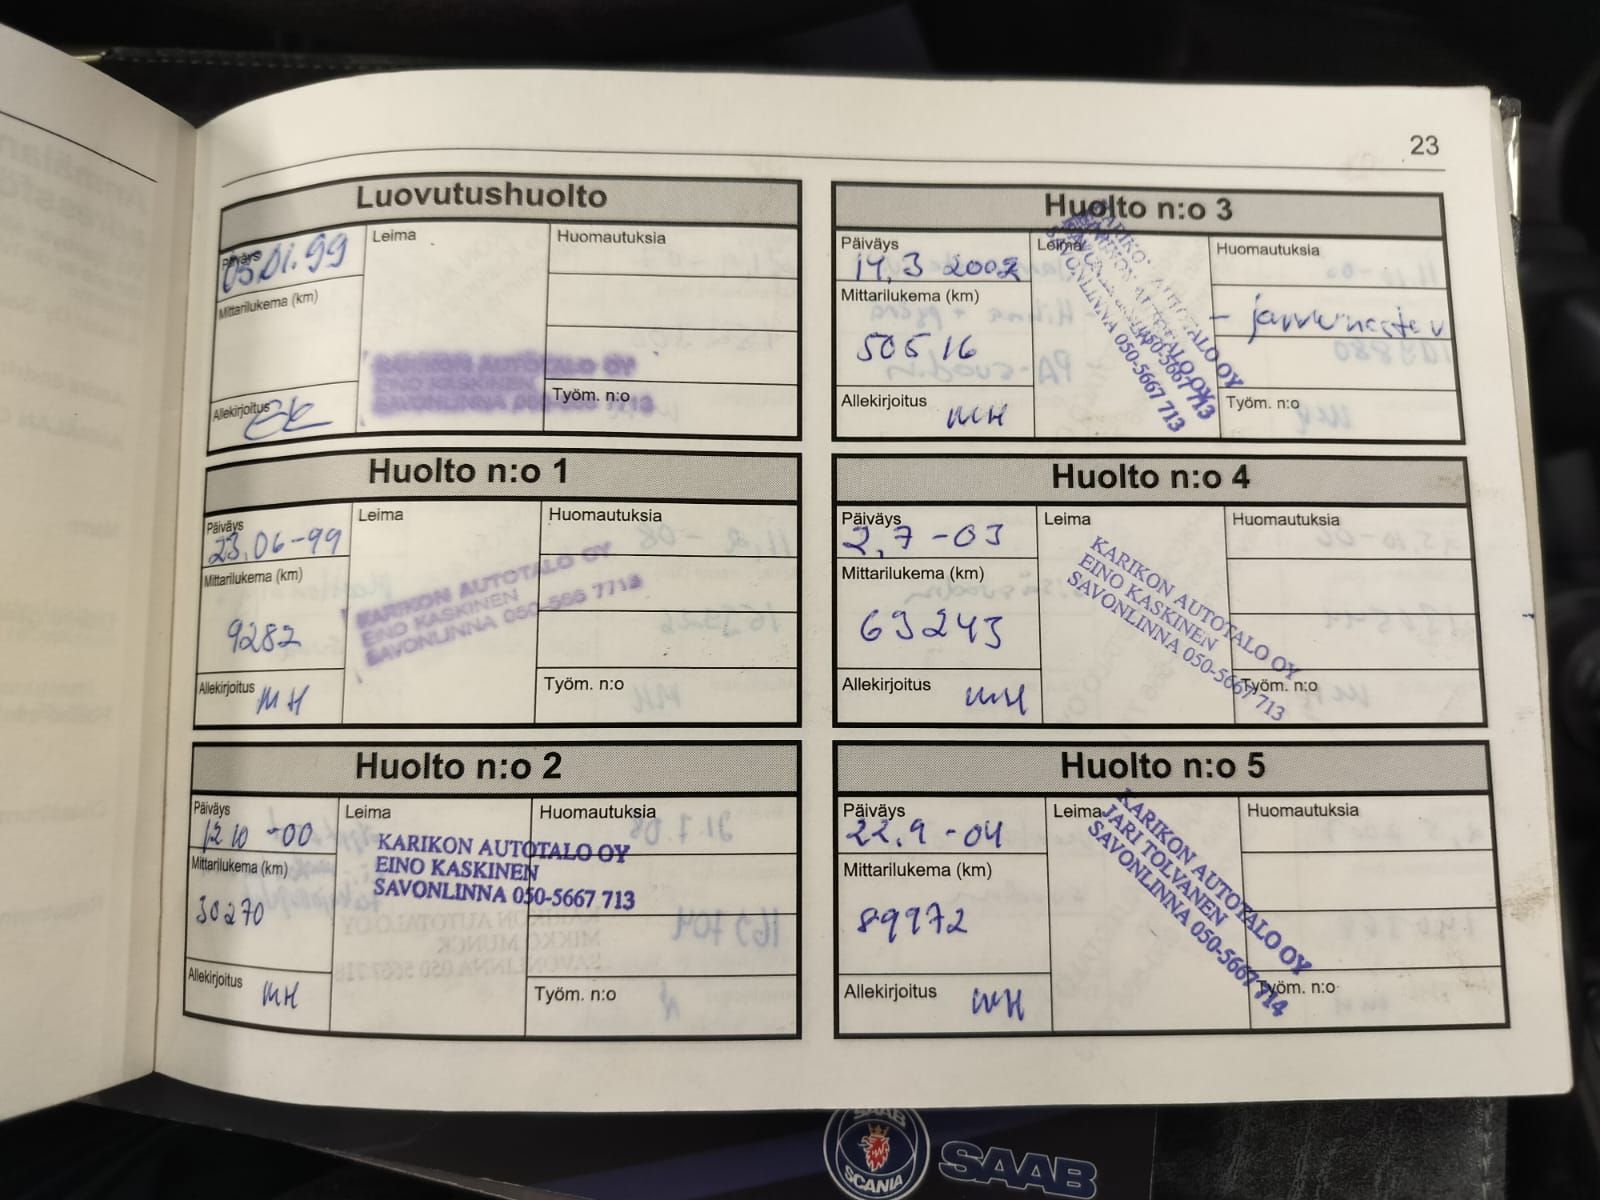 23
Luovutushuolto
Päiväys
03.01.99
Leima
Huomautuksia
Mittarilukema (km)
AUTOTALO OY
EINO KASKINEN
SAVONLINNA
Allekirjoitus
Työm. n:o
Huolto n:o 1
Päiväys
23.06-99
Leima
Huomautuksia
Mittarilukema (km)
9282
KARIKON AUTOTALO OY
EINO KASKINEN
SAVONLINNA 050-566 7713
Allekirjoitus
MH
Työm. n:o
Huolto n:o 2
Päiväys
12 10 -00
Leima
Huomautuksia
Mittarilukema (km)
30270
KARIKON AUTOTALO OY
EINO KASKINEN
SAVONLINNA 050-5667 713
Allekirjoitus
MH
Työm. n:o
Huolto n:o 3
Päiväys
14.3 2002
Leima
Huomautuksia
Mittarilukema (km)
50516
KARIKON AUTOTALO OY
SAVONLINNA 050-5667 713
Allekirjoitus
MH
Työm. n:o
Huolto n:o 4
Päiväys
2.7 -03
Leima
Huomautuksia
Mittarilukema (km)
63243
KARIKON AUTOTALO OY
EINO KASKINEN
SAVONLINNA 050-5667 713
Allekirjoitus
MH
Työm. n:o
Huolto n:o 5
Päiväys
22.9 -04
Leima
Huomautuksia
Mittarilukema (km)
89972
KARIKON AUTOTALO OY
JARI TOLVANEN
SAVONLINNA 050-5667 714
Allekirjoitus
MH
Työm. n:o
SAAB
SCANIA
SAAB